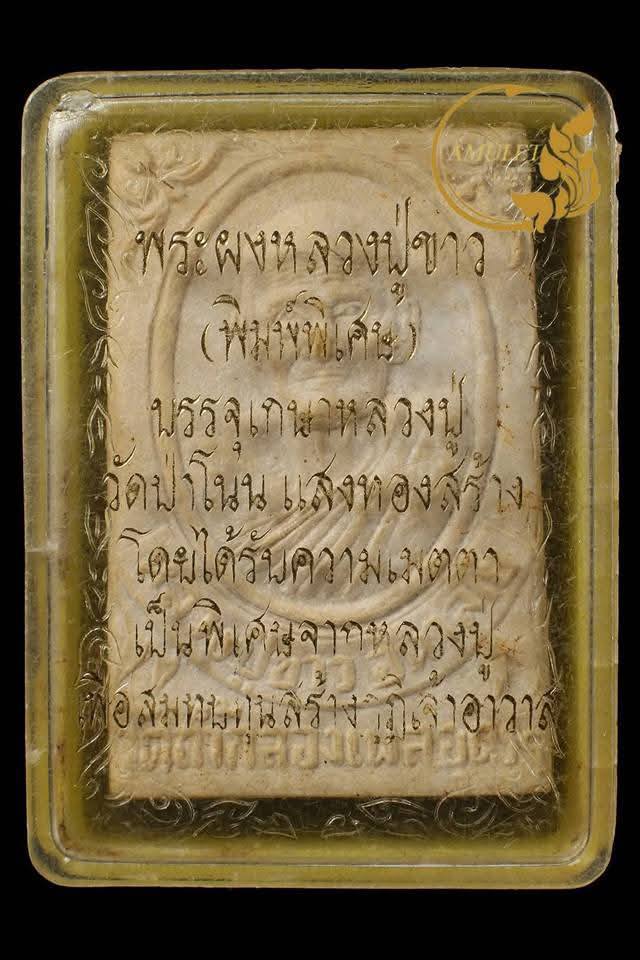 AMULET
พระผงหลวงปู่ขาว
(พิมพ์พิเศษ)
บรรจุเกษาหลวงปู่
วัดป่าโนนแสงทองสร้าง
โดยได้รับความเมตตา
เป็นพิเศษจากหลวงปู่
เพื่อสมทบทุนสร้างกุฏิเจ้าอาวาส